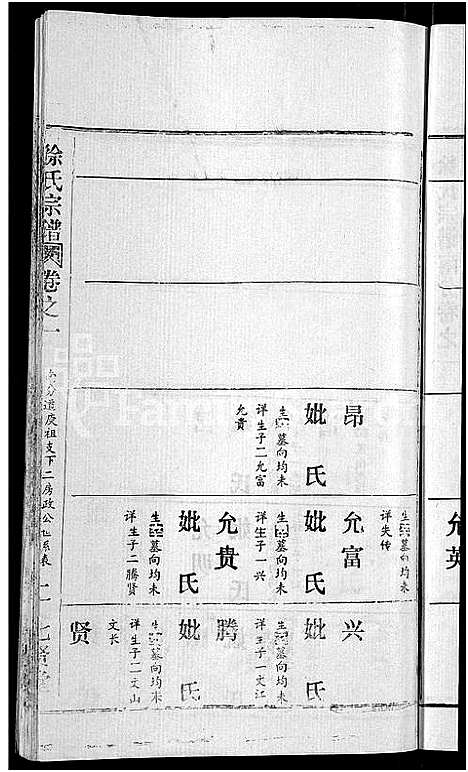 徐氏宗谱 卷之一
遗庚祖支下二房政公世系表
昂
妣氏
生殁墓向均未
详生子二允富
允贵
生殁墓向均未
详失传
允富
妣氏
生殁墓向均未
详生子一兴
允贵
妣氏
生殁墓向均未
详生子二腾贤
兴
妣氏
生殁墓向均未
详生子一文江
腾
妣氏
生殁墓向均未
详生子二文山
文长
贤
允英